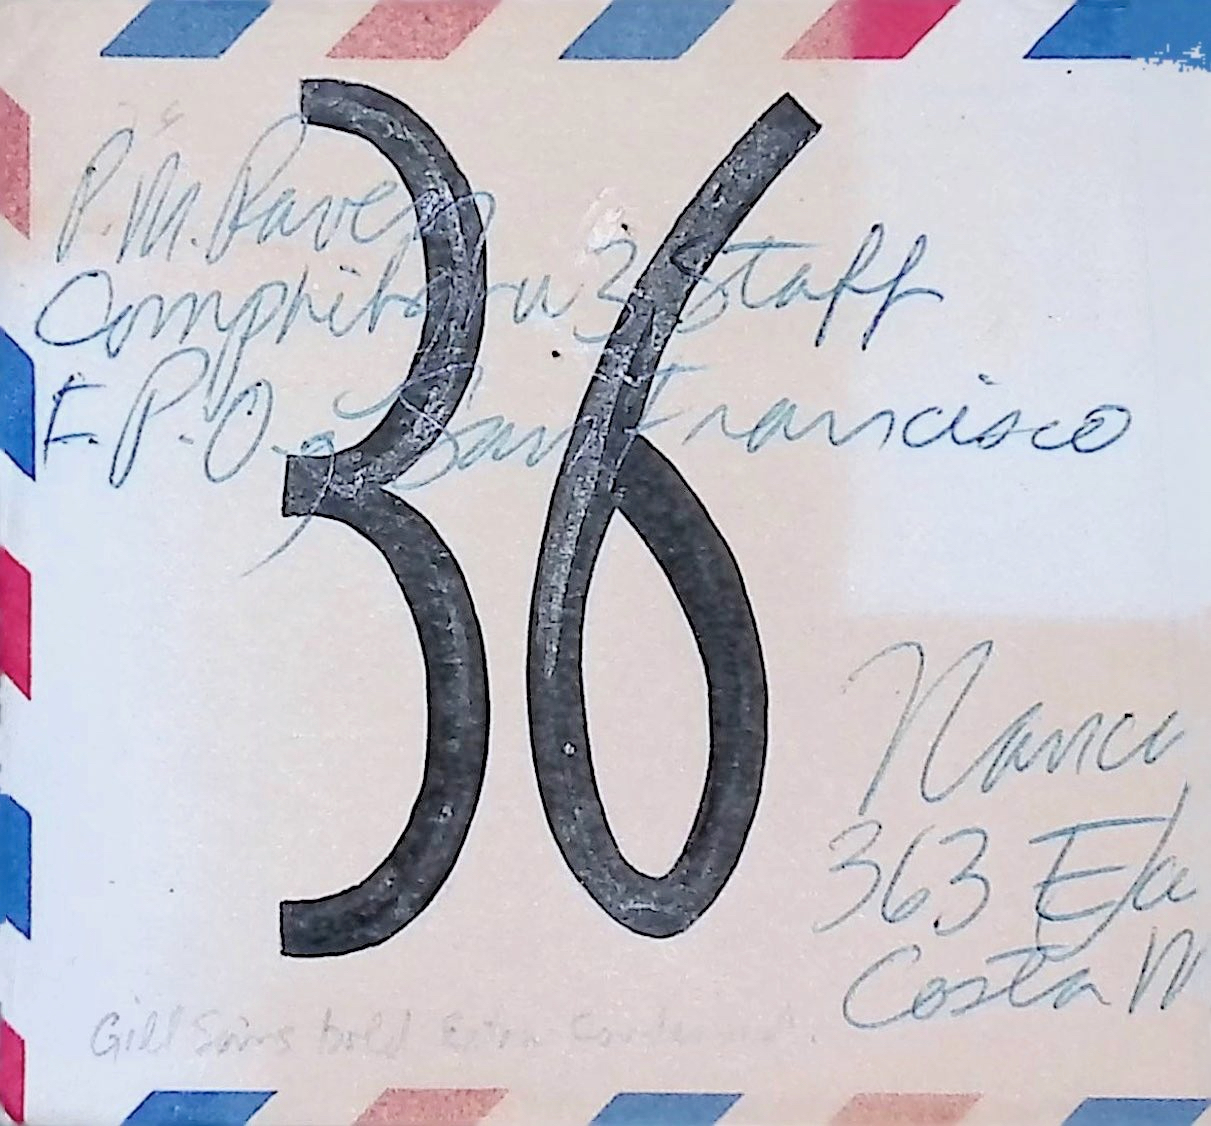 36
P.M. Raven
Comphib 3 Staff
F.P.O. San Francisco
Nanc
363 E
Costa M
Gill Sans bold Extra Condensed.